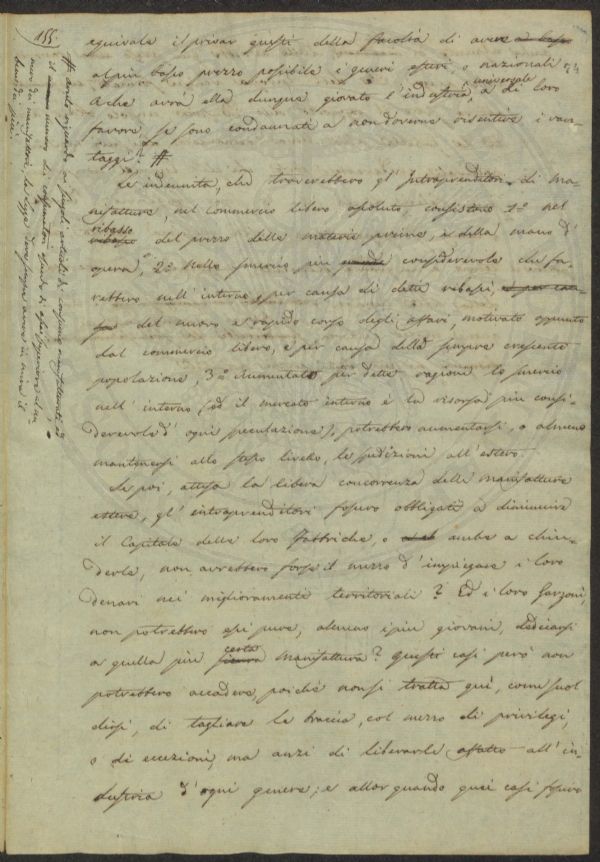 155
equivale il privar questi della facoltà di avere a basso
al più basso prezzo possibile i generi esteri, o nazionali
A che avrà ella dunque giovato l'industria universale, a di loro
favore, se sono condannati a non doverne risentire i van-
taggi? #
Le indennità, che troverebbero gl'Intraprenditori di Ma-
nifatture, nel commercio libero assoluto, consistono 1° nel
ribasso
del prezzo delle materie prime, e della mano d'
opera, 2° nello smercio più considerevole che fa-
rebbero nell'interno, per causa di detti ribassi, e per cau-
sa del nuovo e rapido corso degli affari, motivato appunto
dal commercio libero, e per causa della sempre crescente
popolazione, 3° Aumentato per dette ragioni lo smercio
nell'interno (ed il mercato interno è la risorsa più consi-
derevole d'ogni speculazione), potrebbero aumentarsi, o almeno
mantenersi allo stesso livello, le spedizioni all'estero.
Se poi, attesa la libera concorrenza delle manifatture
estere, gl'intraprenditori fossero obbligati a diminuire
il Capitale delle loro Fabbriche, o anche a chiu-
derle, non avrebbero forse il mezzo d'impiegare i loro
denari nei miglioramenti territoriali? Ed i loro Garzoni,
non potrebbero essi pure, almeno i più giovani, dedicarsi
a quella più certa manifattura? Questi casi però non
potrebbero accadere, poiché non si tratta quì, come suol
dirsi, di tagliare le braccia, col mezzo di privilegi,
o di eccezioni, ma anzi di liberarle affatto all'in-
dustria d'ogni genere; e allor quando quei casi fossero
# avuto riguardo ai singoli articoli di consumo manifatturati ed
il numero dei consumatori essendo di assai superiore al nu-
mero dei manifattori, la legge dovrebbe avere in mira il